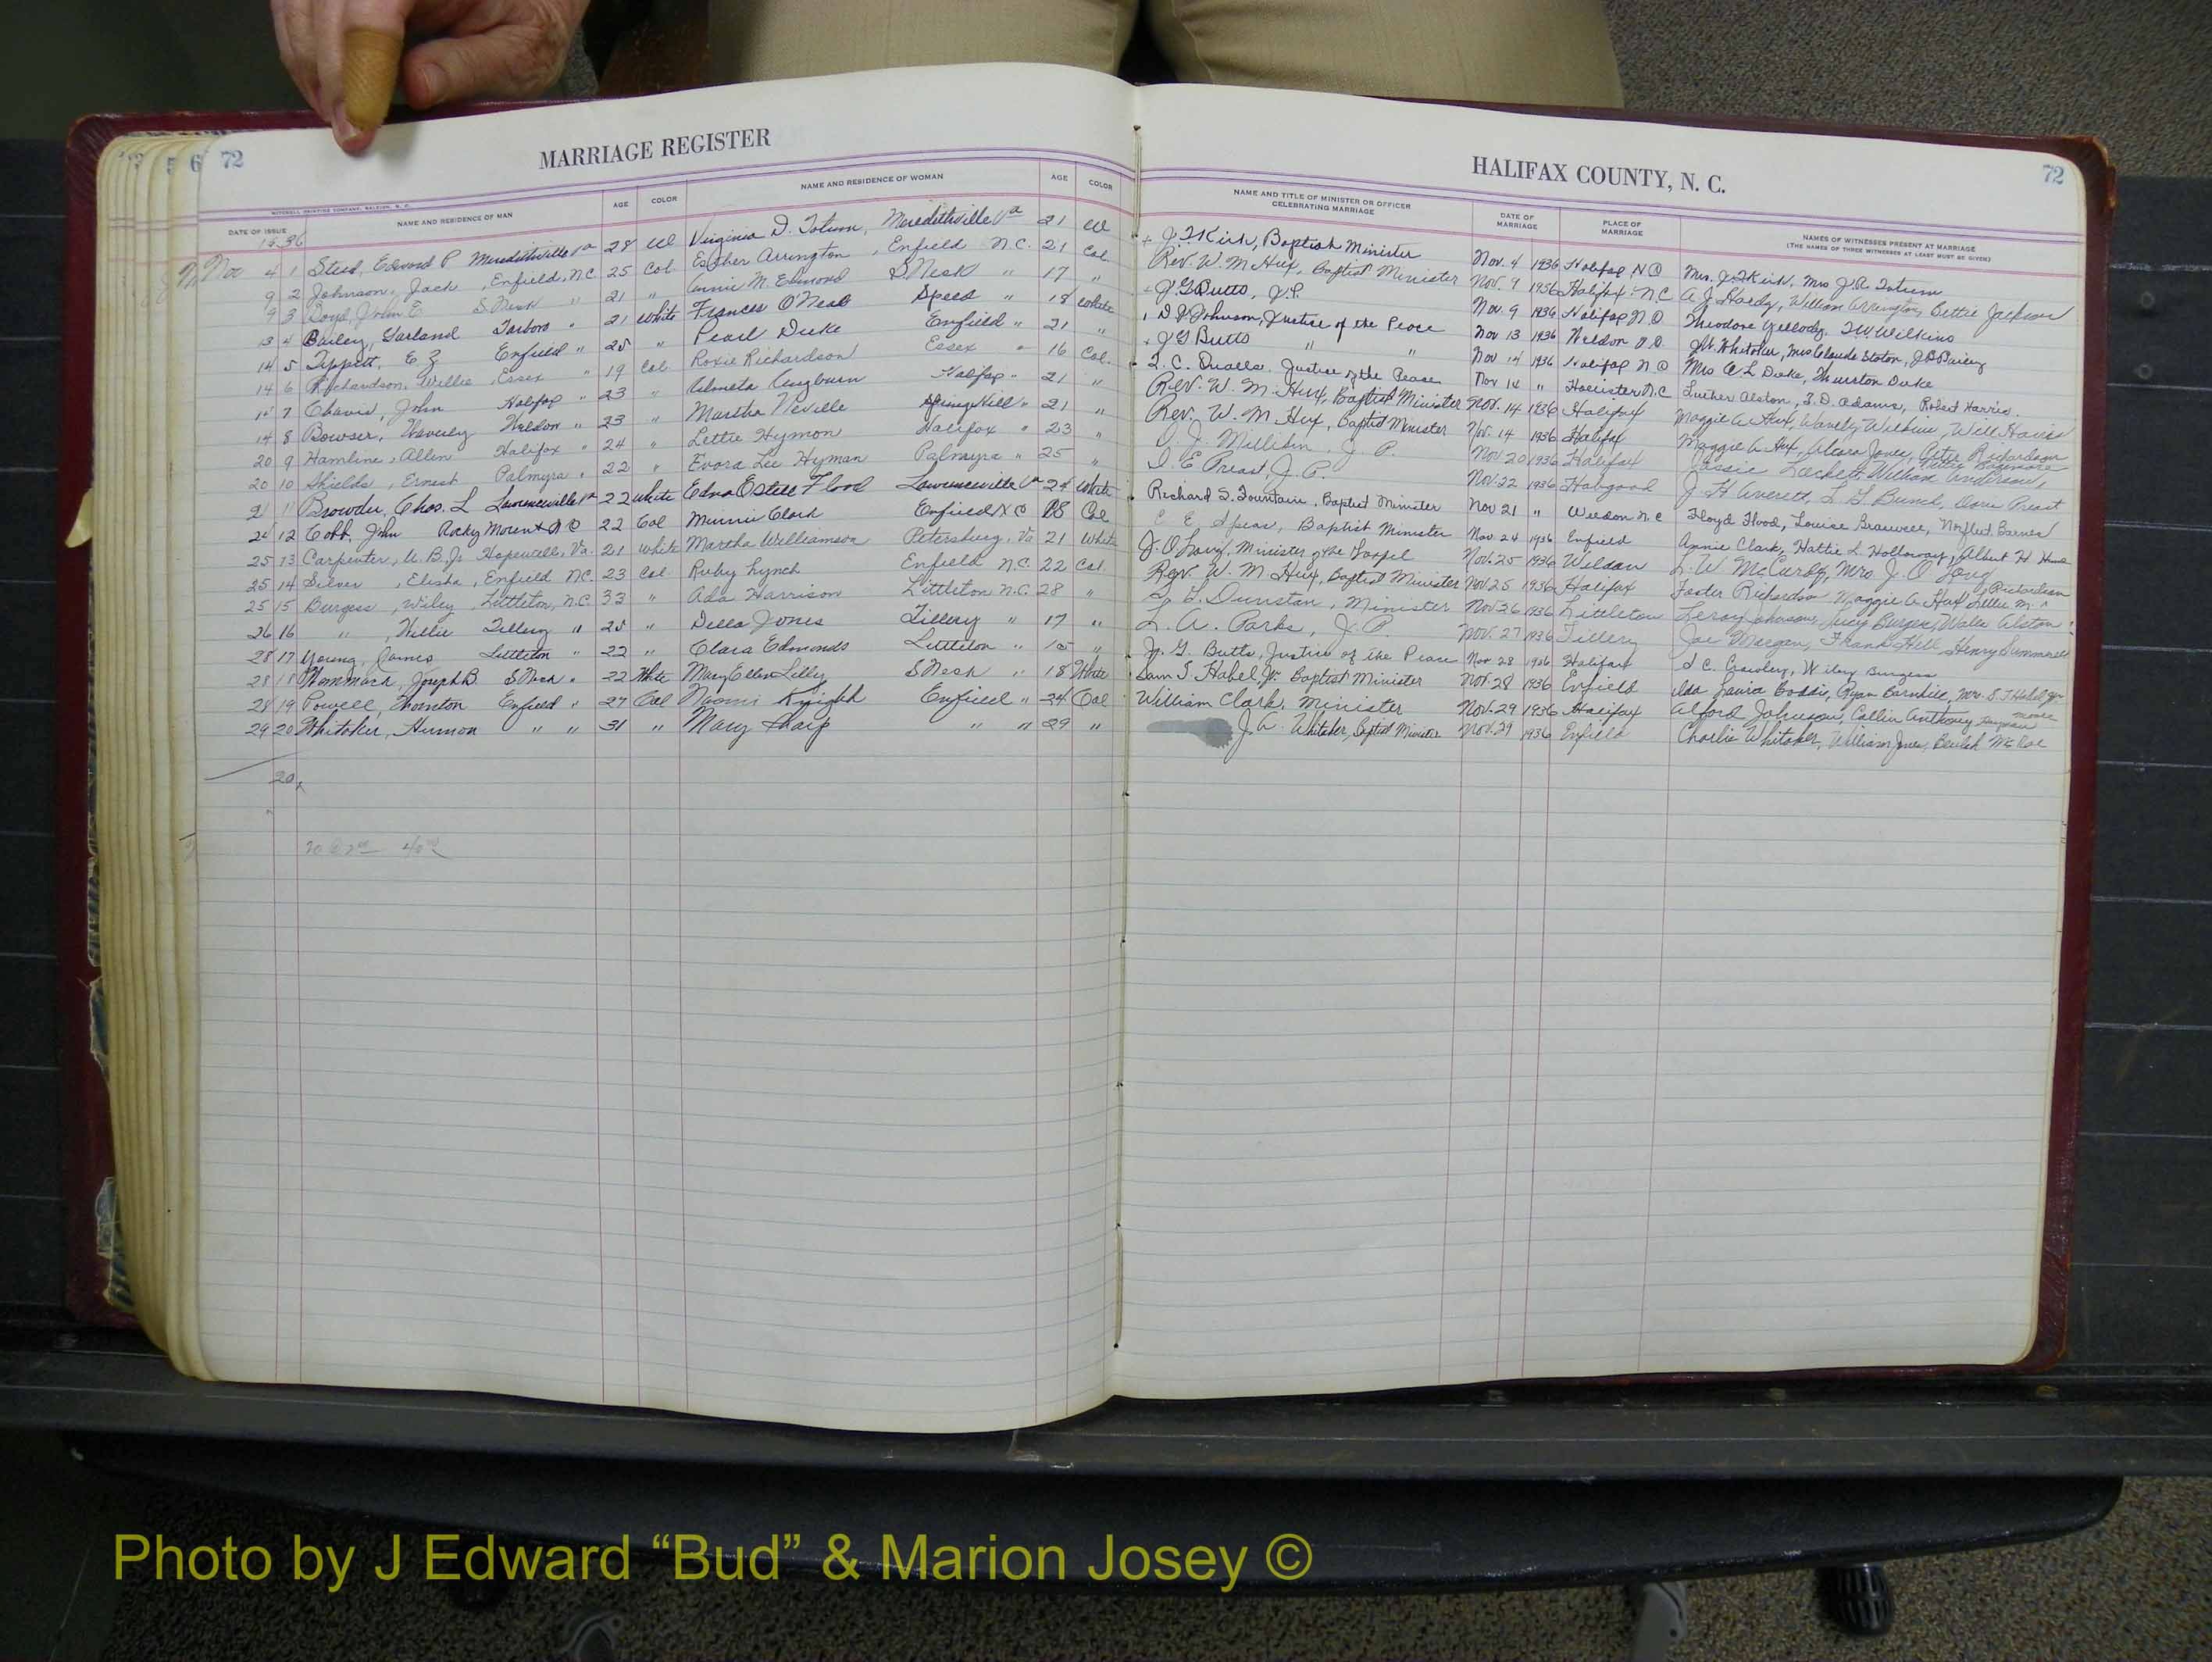 72
MARRIAGE REGISTER
MITCHELL PRINTING COMPANY, RALEIGH, N. C.
DATE OF ISSUE NAME AND RESIDENCE OF MAN AGE COLOR NAME AND RESIDENCE OF WOMAN AGE COLOR
1936
Nov 4 1 Steed, Edward P Meredithville Va 28 Virginia D. Tatum, Meredithville Va 21
9 2 Johnson, Jack, Enfield, N.C. 25 Col Esther Arrington, Enfield N.C. 21 Col
9 3 Boyd, John E. S. Neck " 21 " Annie M. Edmond S. Neck " 17 "
13 4 Bailey, Garland Tarboro " 21 White Frances O'Neal Speed " 18 White
14 5 Tippett, E Z Enfield " 25 " Pearl Duke Enfield " 21 "
14 6 Richardson, Willie, Essex " 19 Col Roxie Richardson Essex " 16 Col.
7 Chavis, John Halifax " 23 " Halifax " 21 "
14 8 Bowser, Waverly Weldon " 23 " Martha Neville Spring Hill " 21 "
20 9 Hamline, Allen Halifax " 24 " Lettie Hymon Halifax " 23 "
20 10 Shields, Ernest Palmyra " 22 " Evora Lee Hyman Palmyra " 25 "
21 11 Browder, Chas. L Lawrenceville Va 22 White Edna Estelle Flood Lawrenceville Va 24 White
24 12 Cobb, John Rocky Mount N C 22 Col Minnie Clark Enfield N C 18 Col
25 13 Carpenter, U. B. Jr Hopewell, Va. 21 White Martha Williamson Petersburg, Va 21 White
25 14 Silver, Elisha, Enfield N.C. 23 Col Ruby Lynch Enfield N.C. 22 Col.
25 15 Burgess, Wiley, Littleton, N.C. 33 " Ada Harrison Littleton N.C. 28 "
26 16 " , Willie Tillery " 25 " Della Jones Tillery " 17 "
28 17 Young, James Littleton " 22 " Clara Edmonds Littleton " "
28 18 Wommack, Joseph B. S Neck " 22 White Mary Ellen Lilly S Neck " 18 White
28 19 Powell, Thornton Enfield " 27 Col Naomi Knight Enfield " 24 Col
29 20 Whitaker, Humon " " 31 " Mary " " 29 "
20
HALIFAX COUNTY, N. C.
72
NAME AND TITLE OF MINISTER OR OFFICER CELEBRATING MARRIAGE DATE OF MARRIAGE PLACE OF MARRIAGE NAMES OF WITNESSES PRESENT AT MARRIAGE
(THE NAMES OF THREE WITNESSES AT LEAST MUST BE GIVEN)
J. T Kirk, Baptist Minister Nov. 4 1936 Halifax N C Mrs. J. T Kirk, Mrs J. R. Tatum
Rev. W. M Hux, Baptist Minister Nov. 9 1936 Halifax N.C A. J. Hardy, William Arrington, Bettie Jackson
J. G Butts, J. P. Nov. 9 1936 Halifax N. C. Theodore T. W. Wilkins
Johnson, Justice of the Peace Nov 13 1936 Weldon N. C. J. W. Whitaker, Mrs Claude Staton, J. B Bailey
J G Butts " " Nov 14 1936 Halifax N C Mrs A. L Duke, Thurston Duke
L. C. Qualls, Justice of the Peace Nov 14 " Hollister N.C Luther Alston, Z. D. Adams, Robert Harris.
Rev. W. M. Hux, Baptist Minister Nov. 14 1936 Halifax Maggie A. Hux, Will
Rev. W. M Hux, Baptist Minister Nov. 14 1936 Halifax Maggie A. Hux, Jones, Richardson
Milliken, J. P. Nov 20 1936 Halifax William Anderson,
Preast, J. P. Nov. 22 1936 Hobgood J. H Averett, Preast
Richard S. Fountain, Baptist Minister Nov 21 " Weldon N.C Floyd Flood, Louise Norfleet Barnes
Spear, Baptist Minister Nov. 24 1936 Enfield Annie Clark, Hattie L. Holloway, Albert H
J. O Long, Minister of the Gospel Nov. 25 1936 Weldon L. W. McCurdy, Mrs J. O Long
Rev. W. M Hux, Baptist Minister Nov. 25 1936 Halifax Foster Richardson Maggie A. Hux Lillie M. Richardson
Dunstan, Minister Nov. 26 1936 Littleton Leroy Johnson, Burgess, Alston
L. A. Parks, J. P. Nov. 27 1936 Tillery Joe Frank Hill Henry
J. G. Butts, Justice of the Peace Nov 28 1936 Halifax Wiley Burgess
Sam T. Habel, Jr. Baptist Minister Nov. 28 1936 Enfield Ida Mrs. S. T. Habel Jr.
William Clark, Minister Nov. 29 1936 Halifax Alford Johnson, Anthony
J. A. Whitaker, Baptist Minister Nov. 29 1936 Enfield Charlie Whitaker, William Jones, Beulah McRae
Photo by J Edward “Bud” & Marion Josey ©